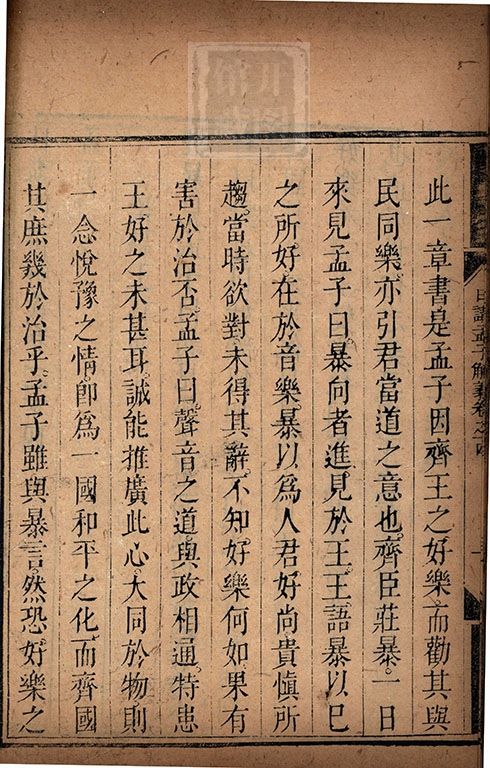 此一章書是孟子因齊王之好樂而勸其與
民同樂亦引君當道之意也齊臣莊暴一日
來見孟子曰暴向者進見於王王語暴以已
之所好在於音樂暴以為人君好尚貴慎所
趨當時欲對未得其辭不知好樂何如果有
害於治否孟子曰聲音之道與政相通特患
王好之未甚耳誠能推廣此心大同於物則
一念悅豫之情卽爲一國和平之化而齊國
其庶幾於治乎孟子雖與暴言然恐好樂之
日講孟子解義卷之四